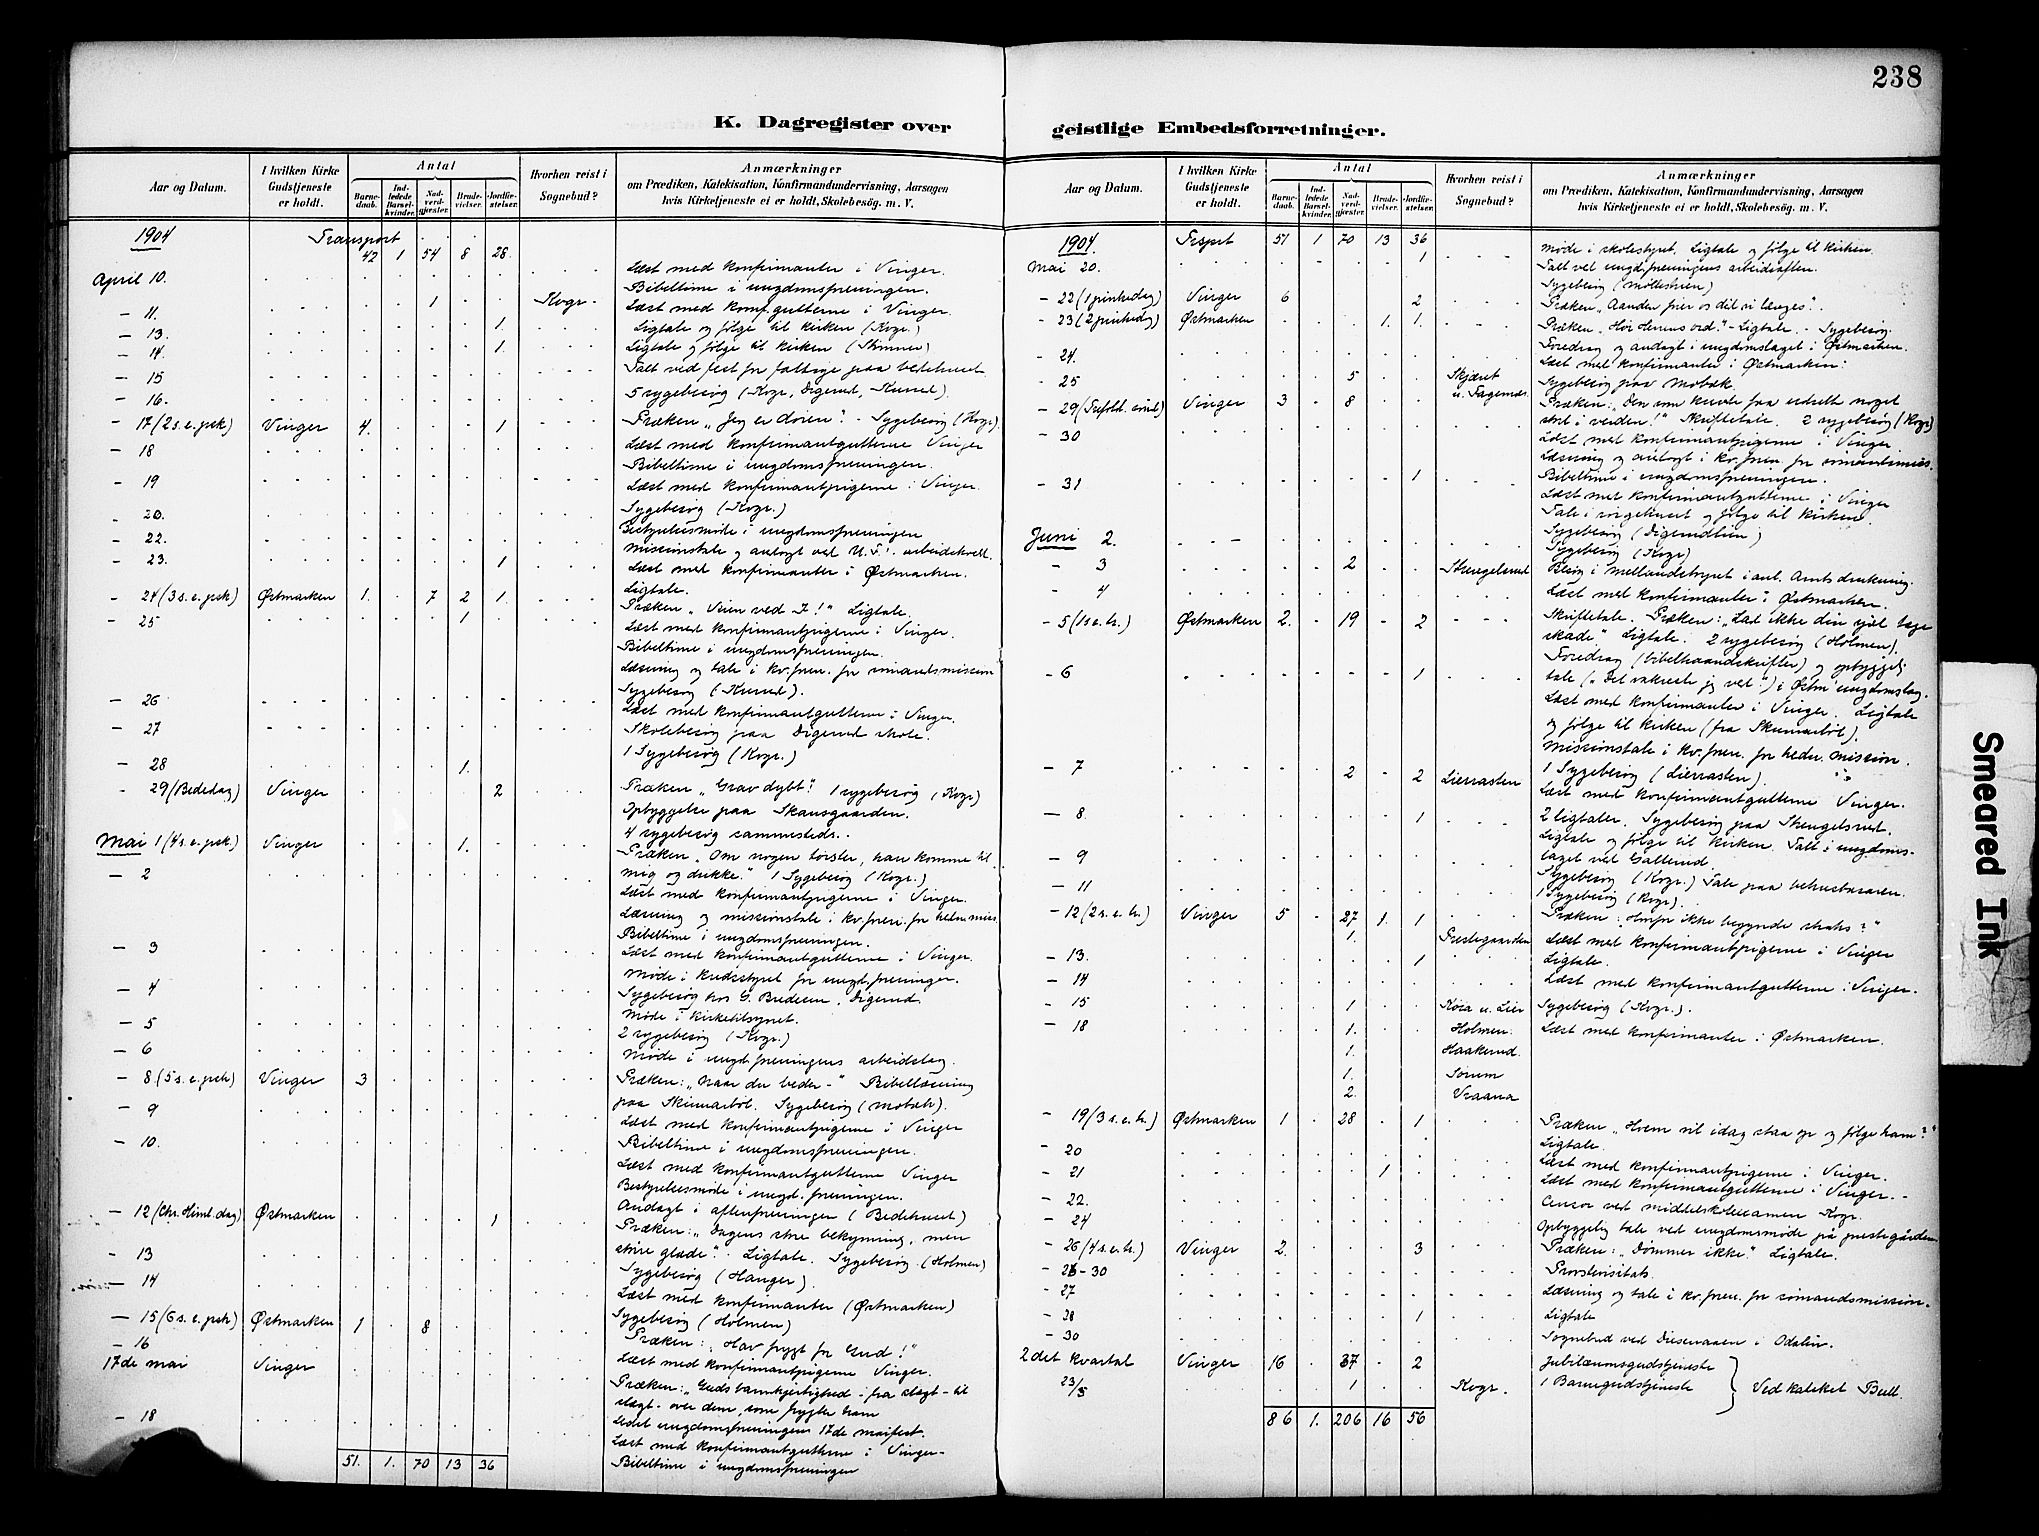 238
K. Dagregister over
geistlige Embedsforretninger.
Aar og Datum. I hvilken Kirke Gudstjeneste er holdt. Antal Barnedaab. Indledede Barselkvinder. Nadverdgjester. Brudevielser. Jordfæstelser. Hvorhen reist i Sognebud? Anmærkninger om Prædiken, Katekisation, Konfirmandundervisning, Aarsagen hvis Kirketjeneste ei er holdt, Skolebesøg. m. V.
1904 Transport 42 1 54 8 28.
April 10. Læst med konfirmanter i Vinger.
Bibeltime i ungdomsforeningen.
- 11. 1 Kvgr. Læst med konf.gutterne i Vinger.
- 13. 1. Ligtale og følge til kirken (Kvgr.)
- 14. 1. Ligtale og følge til kirken
- 15 Talt ved fest for fattige paa bedehuset.
- 16. 5 sygebesøg (Kvgr, Digerud,
- 17 (2 s. e. psk) Vinger 4. 1 Præken „Jeg er døren". - Sygebesøg (Kvgr).
- 18 Læst med konfirmantgutterne Vinger
Bibeltime i ungdomsforeningen.
- 19 Læst med konfirmantpigerne i Vinger.
- 20. Sygebesøg (Kvgr.)
- 22. Bestyrelsesmøde i ungdomsforeningen
- 23. 1 Missionstale og andagt ved U. F. arbeidskveld.
Læst med konfirmanter i Østmarken.
Ligtale.
- 24 (3 s. e. psk) Østmarken 1. 7 2 1. Præken „Veien ved J!" Ligtale.
- 25 1 Læst med konfirmantpigerne i Vinger.
Bibeltime i ungdomsforeningen.
Læsning og tale i kv.foren. for sømandsmission
- 26 Sygebesøg
Læst med konfirmantgutterne i Vinger.
- 27 Skolebesøg paa Digerud skole.
- 28 1. 1 Sygebesøg (Kvgr.)
- 29 (Bededag) Vinger 2 Præken „Grav dybt". 1 sygebesøg (Kvgr)
Opbyggelse paa Skansgaarden.
4 sygebesøg sammesteds.
Mai 1 (4 s. e. psk.) Vinger 1. Præken „Om nogen tørster, han komme til
mig og drikke." 1 Sygebesøg (Kvgr.)
- 2 Læst med konfirmantpigerne i Vinger.
Læsning og missionstale i kv.foren. for
Bibeltime i ungdomsforeningen.
- 3 Læst med konfirmantgutterne i Vinger.
Møde i kredsstyret for ungd.foreninger.
- 4 Sygebesøg hos G. Digerud.
- 5 Møde i kirketilsynet.
2 sygebesøg (Kvgr.)
- 6 Møde i ungd.foreningens arbeidslag.
- 8 (5 s. e. psk) Vinger 3 Præken: „Naar du beder -" Bibellæsning
paa Skinnarbøl. Sygebesøg
- 9 Læst med konfirmantpigerne i Vinger
Bibeltime i ungdomsforeningen.
- 10. Læst med konfirmantgutterne Vinger
Bestyrelsesmøde i ungd. foreningen.
- 12 (Chr. Himl. dag) Østmarken 1 Andagt i aftenforeninger (Bedehuset)
Præken: „Jagens store bekymring, men
store glæde". Ligtale. Sygebesøg (Holmen)
- 13 Sygebesøg (Hanger).
- 14 Læst med konfirmanter (Østmarken)
Sygebesøg (Holmen)
- 15 (6 s. e. psk) Østmarken 1 8 Præken: „Hav frygt for Gud!"
- 16 Læst med konfirmantpigerne Vinger.
17de mai Vinger Præken: „Guds barmhjertighed - fra slægt til
slægt - over dem, som frygter ham
Ledet ungdomsforeningens 17de maifest.
- 18 Læst med konfirmantgutterne i Vinger
Bibeltime i ungdomsforeningen
51. 1. 70 13 36
Aar og Datum. I hvilken Kirke Gudstjeneste er holdt. Antal Barnedaab. Indledede Barselkvinder. Nadverdgjester. Brudevielser. Jordfæstelser. Hvorhen reist i Sognebud? Anmærkninger om Prædiken, Katekisation, Konfirmandundervisning, Aarsagen hvis Kirketjeneste ei er holdt, Skolebesøg. m. V.
1904. Trsprt 51 1 70 13 36 Møde i skolestyret. Ligtale og følge til kirken.
Mai 20. 1 Talt ved ungd.foreningens arbeidsaften.
Sygebesøg
- 22 (1 pinsedag) Vinger 6 2 Præken „Aanden
- 23 (2 pinsedag) Østmarken 1. 1. Præken „Hør Herrens ord!" - Ligtale. - Sygebesøg.
- 24. Foredrag og andagt i ungdomslaget i Østmarken.
Læst med konfirmanter i Østmarken.
- 25 5 Skjæret u. Fagernes Sygebesøg paa Mobæk.
- 29 (Trefold. sønd) Vinger 3 8 Præken: „Den som kunde faa udrettet noget
stort i verden!" Skriftetale. 2 sygebesøg (Kvgr)
- 30 Læst med konfirmantpigerne i Vinger
Læsning og andagt i kv.foren. for
Bibeltime i ungdomsforeningen.
- 31 1 Læst med konfirmantgutterne i Vinger
Tale i sørgehuset og følge til kirken.
Juni 2. Sygebesøg
Sygebesøg (Kvgr)
- 3 2 Stengelsrud
- 4 Læst med konfirmanter i Østmarken.
- 5 (1 s. e. tr.) Østmarken 2. 19 2 Skriftetale. Præken: „Lad ikke din sjæl tage
skade" Ligtale. 2 sygebesøg (Holmen).
Foredrag (bibelhaandskrifter) og opbyggelig
- 6 1 tale („Det vakreste jeg ved") i Østm. ungdomslag.
Læst med konfirmanter i Vinger. Ligtale
og følge til kirken (fra Skinnarbøl).
Missionstale i kv.foren. for hedn. mission.
- 7 2 2 Lierrasten 1 Sygebesøg (Lierrasten).
Læst med konfirmantgutterne Vinger.
- 8. 1 2 ligtaler. Sygebesøg paa Stengelsrud.
Ligtale og følge til kirken. Talt i ungdoms-
- 9 laget ved Gallerud.
Sygebesøg (Kvgr.) Tale paa
- 11 1 Sygebesøg (Kvgr).
- 12 (2 s. e. tr.) Vinger 5 27 1. 1 Præken: „Hvorfor ikke begynde straks?"
1. Prestegaarden Læst med konfirmantpigerne i Vinger
- 13. 1 Ligtale.
- 14 Læst med konfirmantgutterne i Vinger.
- 15 1 Kosa u. Lier Sygebesøg (Kvgr.).
- 18 1. Holmen. Læst med konfirmanter i Østmarken.
1. Haakerud.
1. Sorum
2. Vraana
- 19 (3 s. e. tr.) Østmarken 1 28 1 Præken „Hvem vil idag staa op og følge ham?"
Ligtale.
- 20 Læst med konfirmantpigerne i Vinger.
- 21 1 Læst med konfirmantgutterne i Vinger.
- 22. Censor ved middelskoleexamen Kvgr.
- 24 Opbyggelig tale ved ungdomsmøde på prestegården
- 26 (4 s. e. tr.) Vinger 2. 3 Præken: „Dømmer ikke." Ligtale.
- 26-30 Provstevisitats.
- 27 Læsning og tale i kv.foren. for sømandsmission.
- 28 1 Ligtale
- 30 Sognebud ved i Odalen.
2det kvartal Vinger 16 37 2 Jubilæumsgudstjeneste
23/5 1 Kvgr. 1 Barnegudstjeneste } Ved kateket Bull.
86 1. 206 16 56
Smeared Ink